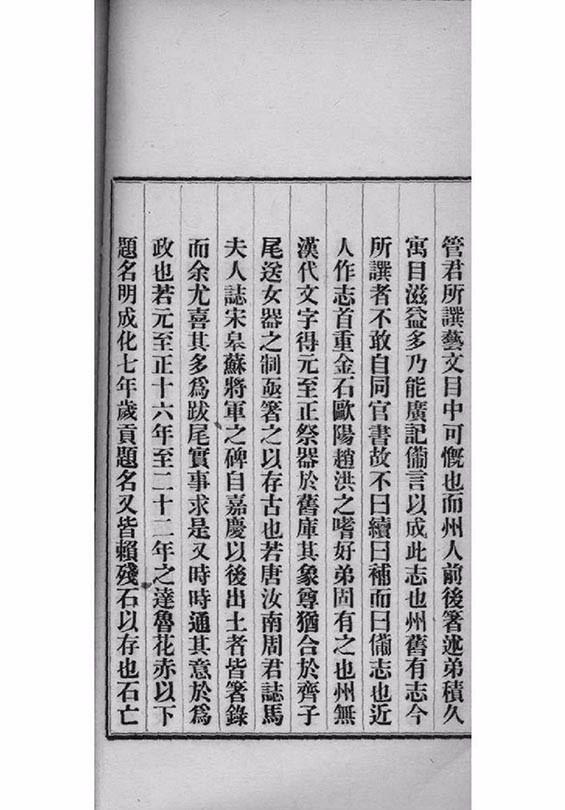 管君所譔藝文目中可慨也而州人前後箸述弟積久
寓目滋益多乃能廣記僃言以成此志也州舊有志今
所譔者不敢自同官書故不曰續曰補而曰僃志也近
人作志首重金石歐陽趙洪之嗜好弟固有之也州無
漢代文字得元至正祭器於舊庫其象尊猶合於齊子
尾送女器之制亟箸之以存古也若唐汝南周君誌馬
夫人誌宋皋蘇將軍之碑自嘉慶以後出土者皆箸錄
而余尤喜其多為跋尾實事求是又時時通其意於為
政也若元至正十六年至二十二年之達魯花赤以下
題名明成化七年歲貢題名又皆賴殘石以存也石亡